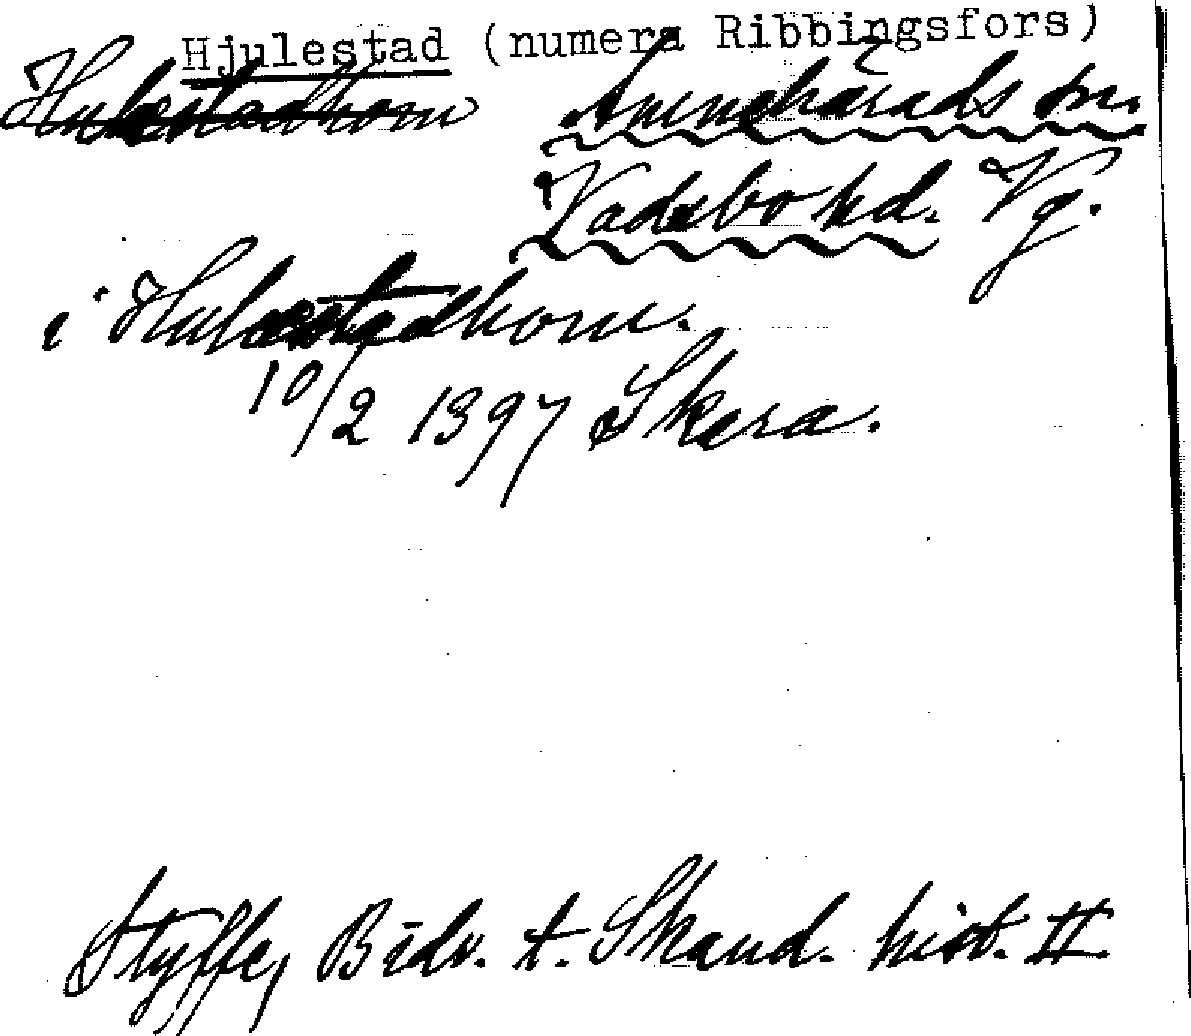 Hjulestad (numera Ribbingsfors)
Hulæstadhom Amnehärads sn.
Vadsbo hd. Vg.
i Hulæstadhom.
10/2 1397 Skara.
Styffe, Bidr. t. Skand. hist. II.